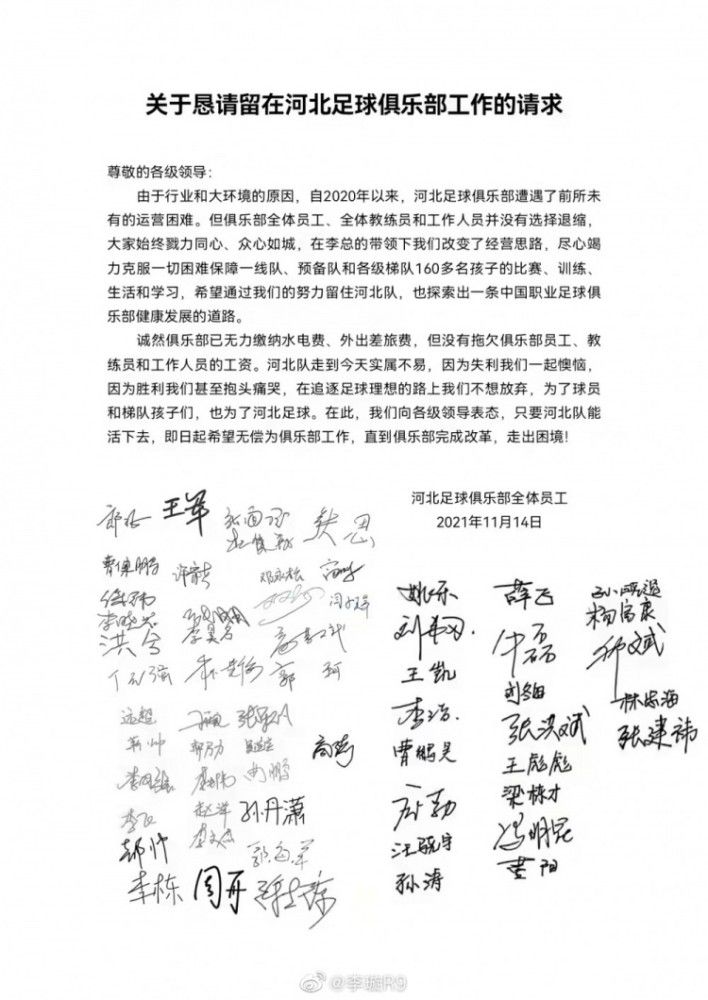 关于恳请留在河北足球俱乐部工作的请求
尊敬的各级领导:
由于行业和大环境的原因，自2020年以来，河北足球俱乐部遭遇了前所未
有的运营困难。但俱乐部全体员工、全体教练员和工作人员并没有选择退缩，
大家始终戮力同心、众心如城，在李总的带领下我们改变了经营思路，尽心竭
力克服一切困难保障一线队、预备队和各级梯队160多名孩子的比赛、训练、
生活和学习，希望通过我们的努力留住河北队，也探索出一条中国职业足球俱
乐部健康发展的道路。
诚然俱乐部已无力缴纳水电费、外出差旅费，但没有拖欠俱乐部员工、教
练员和工作人员的工资。河北队走到今天实属不易，因为失利我们一起懊恼，
因为胜利我们甚至抱头痛哭，在追逐足球理想的路上我们不想放弃，为了球员
和梯队孩子们，也为了河北足球。在此，我们向各级领导表态，只要河北队能
活下去，即日起希望无偿为俱乐部工作，直到俱乐部完成改革，走出困境!
河北足球俱乐部全体员工
2021年11月14日
王军
洪兮
郭珂
远超
孙丹潇
李栋 周开
姚乐
王凯
李浩
曹鹏昊
孙涛
薛飞
牛磊
张洪斌
王彪彪
梁栋才
冯明昆
黄阳
杨富康
林志海
张建祎
@李璇R9